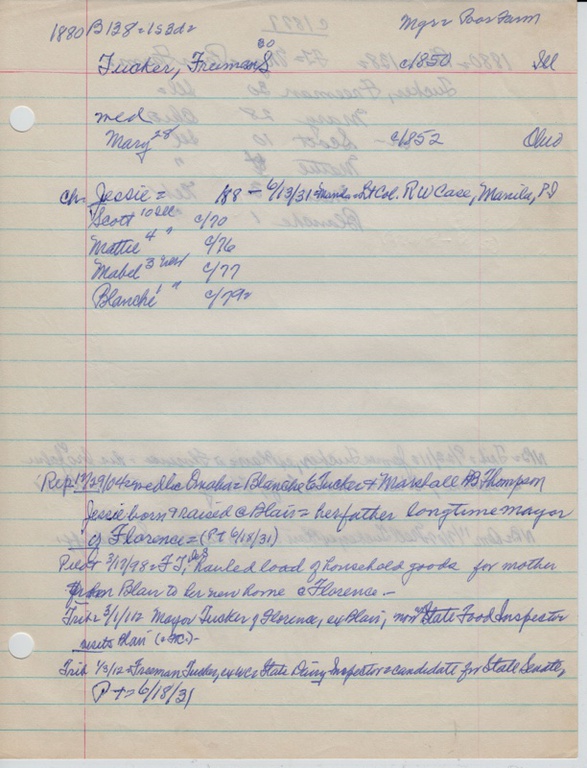 1880 B 138=1SBd=
Mgr= Poor Farm
Tucker, Freeman S 30 c1850 Ill
wed
Mary 28 - c/1852 Ohio
Chn Jessie = 188 - 6/13/31=Manila= Lt Col. R W Case, Manila, PI
Scott 10 Ill c/70
Mattie 4 " c/76
Mabel 3 Neb c/77
Blanché 1 " c/79=
Rep. 12/29/04=wed lic Omaha= Blanche E Tucker + Marshall B Thompson
Jessie born + raised c Blair = her father longtime mayor
of Florence = (P+ 6/18/31)
Pilot 3/17/98= F T, hauled load of household goods for mother
from Blair to her new home c Florence -
Trib= 3/1/112 Mayor Tucker of Florence, ex Blair, now State Food Inspector
visits Blair
Trib 1/3/12= Freeman Tucker, ex WC= State Dairy Inspector= candidate for State Senate,
P+= 6/18/31